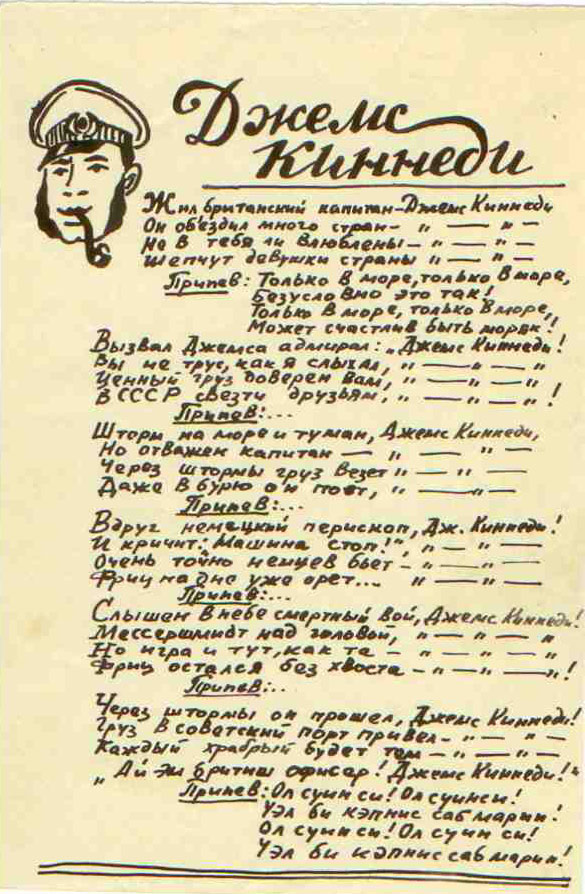 Джемс
Киннеди
Жил британский капитан-Джемс Киннеди
Он об'ездил много стран- „ — „ –
Не в тебя ли влюблены- „ — „ –
Шепчут девушки страны „ — „ –
Припев: Только в море, только в море,
Безусловно это так!
Только в море, только в море,
Может счастлив быть моряк!
Вызвал Джемса адмирал: „Джемс Киннеди!
Вы не трус, как я слыхал, „ — „ — „
Ценный груз доверен вам, „ — „ — „
В СССР свезти друзьям, „ — „ — „ !
Припев:...
Шторм на море и туман, Джемс Киннеди,
Но отважен капитан — „ — „ –
Через штормы груз везет „ — „ —
Даже в бурю он поет, „ — „ —
Припев:...
Вдруг немецкий перископ, Дж. Киннеди!
И кричит: „Машина стоп!", „ — „ —
Очень точно немцев бьет – „ — „ —
Фриц на дне уже орет... „ — „ —
Припев:...
Слышен в небе смертный вой, Джемс Киннеди!
Мессершмидт над головой, „ – „ – „
Но игра и тут, как та – „ – „ – „
Фриц остался без хвоста – „ – „ – „!
Припев:..
Через штормы он прошел, Джемс Киннеди!
Груз в советский порт привел- „ — „ –
Каждый храбрый будет там – „ — „ –
„Ай эм бритиш офисер! Джемс Киннеди!"
Припев: Ол суин си! Ол суинси!
Уэл би кэпнис саб марин!
Ол суин си! Ол суин си!
Уэл би кэпнис саб марин!